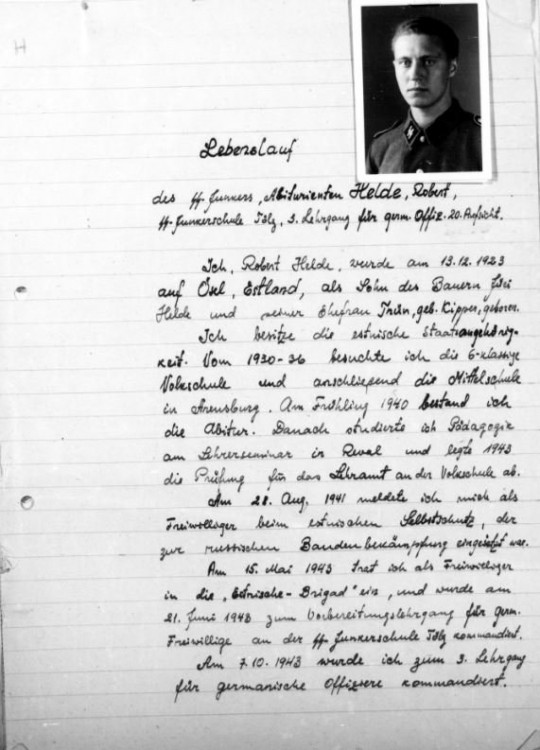 H
Lebenslauf
des SS-Junkers, Abiturienten Helde, Robert,
SS-Junkerschule Tölz, 3. Lehrgang für germ. Offiz. 20. Aufsicht.
Ich, Robert Helde, wurde am 13.12.1923
auf Ösel, Estland, als Sohn des Bauern
Helde und seiner Ehefrau Triin, geb. Kipper, geboren.
Ich besitze die estnische Staatsangehörig-
keit. Vom 1930-36 besuchte ich die 6-klassige
Volkschule und anschliessend die Mittelschule
in Arensburg. Am Frühling 1940 bestand ich
die Abitur. Danach studierte ich Pädagogik
am Lehrerseminar in Reval und legte 1943
die Prüfung für das Lehramt an der Volkschule ab.
Am 28. Aug. 1941 meldete ich mich als
Freiwilliger beim estnischen Selbstschutz, der
zur russischen Bandenbekämpfung eingesetzt war.
Am 15. Mai 1943 trat ich als Freiwilliger
in die „Estnische-Brigad" ein, und wurde am
21. Juni 1943 zum Vorbereitungslehrgang für germ.
Freiwillige an der SS-Junkerschule Tölz kommandiert.
Am 7.10.1943 wurde ich zum 3. Lehrgang
für germanische Offiziere kommandiert.